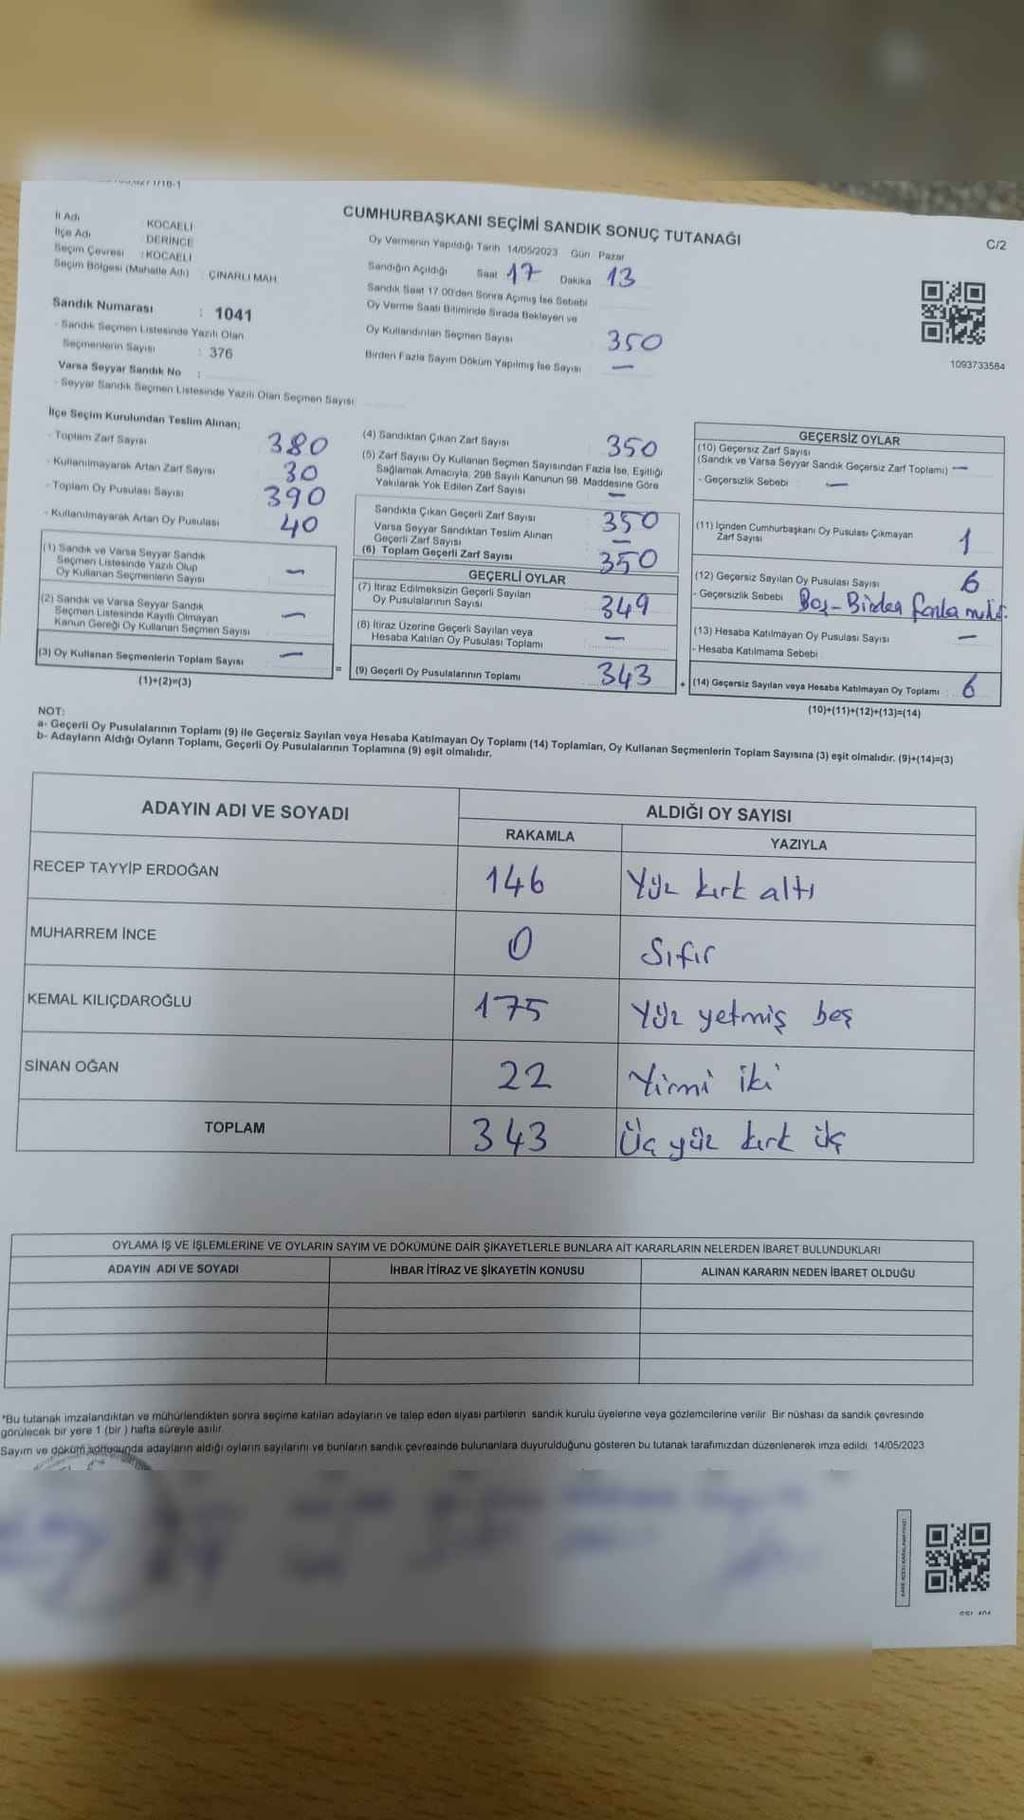 CUMHURBAŞKANI SEÇİMİ SANDIK SONUÇ TUTANAĞI
C/2
İl Adı KOCAELİ
İlçe Adı DERİNCE
Seçim Çevresi : KOCAELİ
Seçim Bölgesi (Mahalle Adı) ÇINARLI MAH
Sandık Numarası : 1041
- Sandık Seçmen Listesinde Yazılı Olan
Seçmenlerin Sayısı : 376
Varsa Seyyar Sandık No :
- Seyyar Sandık Seçmen Listesinde Yazılı Olan Seçmen Sayısı
Oy Vermenin Yapıldığı Tarih 14/05/2023 Gün Pazar
Sandığın Açıldığı Saat 17 Dakika 13
Sandık Saat 17.00'den Sonra Açmış İse Sebebi
Oy Verme Saati Bitiminde Sırada Bekleyen ve
Oy Kullandırılan Seçmen Sayısı 350
Birden Fazla Sayım Döküm Yapılmış İse Sayısı —
1093733584
İlçe Seçim Kurulundan Teslim Alınan;
- Toplam Zarf Sayısı 380
- Kullanılmayarak Artan Zarf Sayısı 30
- Toplam Oy Pusulası Sayısı 390
- Kullanılmayarak Artan Oy Pusulası 40
(1) Sandık ve Varsa Seyyar Sandık
Seçmen Listesinde Yazılı Olup
Oy Kullanan Seçmenlerin Sayısı —
(2) Sandık ve Varsa Seyyar Sandık
Seçmen Listesinde Kayıtlı Olmayan
Kanun Gereği Oy Kullanan Seçmen Sayısı —
(3) Oy Kullanan Seçmenlerin Toplam Sayısı —
(1)+(2)=(3)
(4) Sandıktan Çıkan Zarf Sayısı 350
(5) Zarf Sayısı Oy Kullanan Seçmen Sayısından Fazla İse, Eşitliği
Sağlamak Amacıyla, 298 Sayılı Kanunun 98. Maddesine Göre
Yakılarak Yok Edilen Zarf Sayısı —
Sandıkta Çıkan Geçerli Zarf Sayısı 350
Varsa Seyyar Sandıktan Teslim Alınan
Geçerli Zarf Sayısı —
(6) Toplam Geçerli Zarf Sayısı 350
GEÇERLİ OYLAR
(7) İtiraz Edilmeksizin Geçerli Sayılan
Oy Pusulalarının Sayısı 349
(8) İtiraz Üzerine Geçerli Sayılan veya
Hesaba Katılan Oy Pusulası Toplamı —
= (9) Geçerli Oy Pusulalarının Toplamı 343
GEÇERSİZ OYLAR
(10) Geçersiz Zarf Sayısı
(Sandık ve Varsa Seyyar Sandık Geçersiz Zarf Toplamı) —
- Geçersizlik Sebebi —
(11) İçinden Cumhurbaşkanı Oy Pusulası Çıkmayan
Zarf Sayısı 1
(12) Geçersiz Sayılan Oy Pusulası Sayısı 6
- Geçersizlik Sebebi Boş - Birden fazla
(13) Hesaba Katılmayan Oy Pusulası Sayısı —
- Hesaba Katılmama Sebebi
+ (14) Geçersiz Sayılan veya Hesaba Katılmayan Oy Toplamı 6
(10)+(11)+(12)+(13)=(14)
NOT:
a- Geçerli Oy Pusulalarının Toplamı (9) ile Geçersiz Sayılan veya Hesaba Katılmayan Oy Toplamı (14) Toplamları, Oy Kullanan Seçmenlerin Toplam Sayısına (3) eşit olmalıdır. (9)+(14)=(3)
b- Adayların Aldığı Oyların Toplamı, Geçerli Oy Pusulalarının Toplamına (9) eşit olmalıdır.
ADAYIN ADI VE SOYADI ALDIĞI OY SAYISI
RAKAMLA YAZIYLA
RECEP TAYYİP ERDOĞAN 146 Yüz kırk altı
MUHARREM İNCE 0 Sıfır
KEMAL KILIÇDAROĞLU 175 Yüz yetmiş beş
SİNAN OĞAN 22 Yirmi iki
TOPLAM 343 Üç yüz kırk üç
OYLAMA İŞ VE İŞLEMLERİNE VE OYLARIN SAYIM VE DÖKÜMÜNE DAİR ŞİKAYETLERLE BUNLARA AİT KARARLARIN NELERDEN İBARET BULUNDUKLARI
ADAYIN ADI VE SOYADI İHBAR İTİRAZ VE ŞİKAYETİN KONUSU ALINAN KARARIN NEDEN İBARET OLDUĞU
*Bu tutanak imzalandıktan ve mühürlendikten sonra seçime katılan adayların ve talep eden siyasi partilerin sandık kurulu üyelerine veya gözlemcilerine verilir. Bir nüshası da sandık çevresinde
görülecek bir yere 1 (bir ) hafta süreyle asılır.
Sayım ve döküm sonucunda adayların aldığı oyların sayılarını ve bunların sandık çevresinde bulunanlara duyurulduğunu gösteren bu tutanak tarafımızdan düzenlenerek imza edildi. 14/05/2023